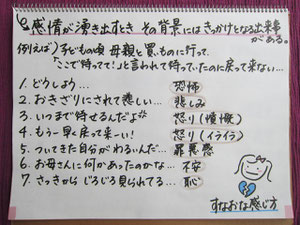 感情が湧き出すとき その背景にはきっかけとなる出来事がある。
例えば) 子どもの頃 母親と買いものに行って、
「ここで待ってて!」と言われて待っていたのに戻って来ない…
1. どうしよう… 恐怖
2. おきざりにされて悲しい… 悲しみ
3. いつまで待せるんだよ 怒り(憤慨)
4. もうー早く戻って来ーい! 怒り(イライラ)
5. ついてきた自分がわるいんだ… 罪悪感
6. お母さんに何かあったのかな… 不安
7. さっきからじろじろ見られてる… 恥
すなおな感じ方